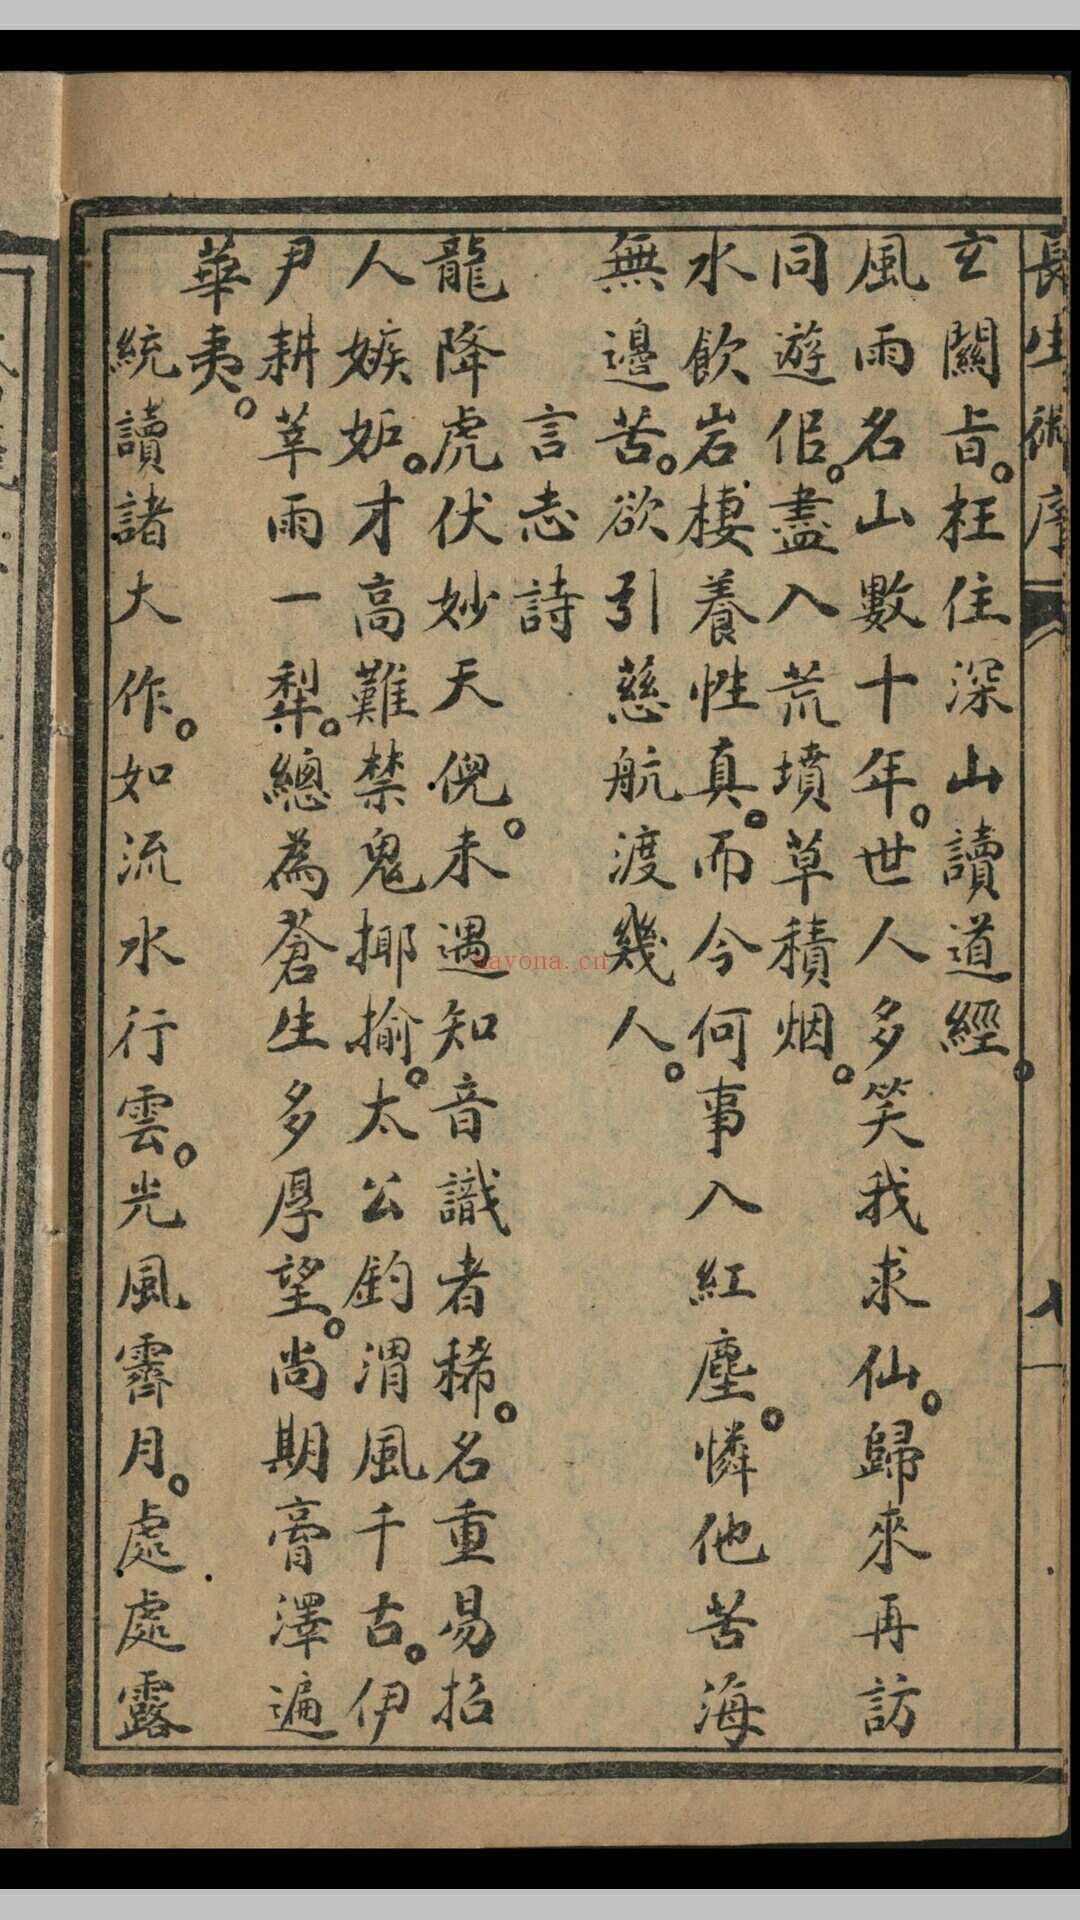 長生術序
玄關旨。枉住深山讀道經。
風雨名山數十年。世人多笑我求仙。歸來再訪
同遊侶。盡入荒墳草積烟。
水飲岩棲養性真。而今何事入紅塵。憐他苦海
無邊苦。欲引慈航渡幾人。
言志詩
龍降虎伏妙天倪。未遇知音識者稀。名重易招
人嫉妬。才高難禁鬼揶揄。太公釣渭風千古。伊
尹耕莘雨一犁。總為蒼生多厚望。尚期膏澤遍
華夷。
統讀諸大作。如流水行雲。光風霽月。處處露
nayona.cn